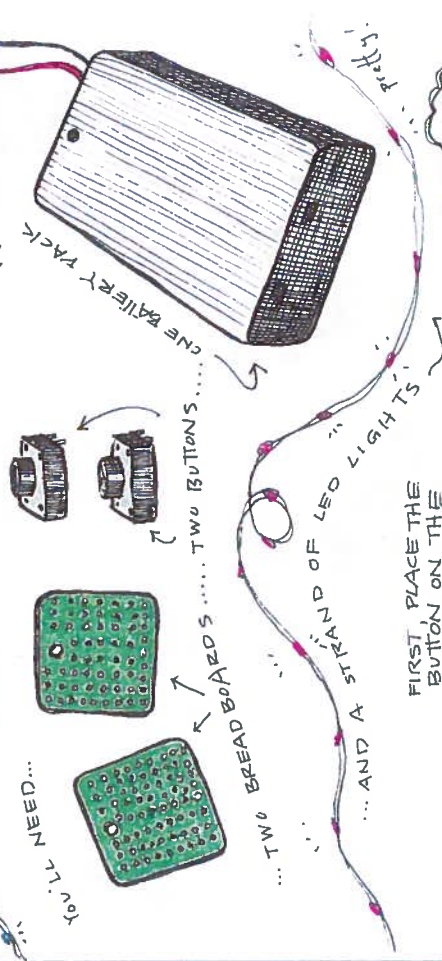 YOU'LL NEED...
...TWO BREADBOARDS.....TWO BUTTONS.....ONE BATTERY PACK
...AND A STRAND OF LED LIGHTS
pretty!
FIRST PLACE THE
BUTTON ON THE